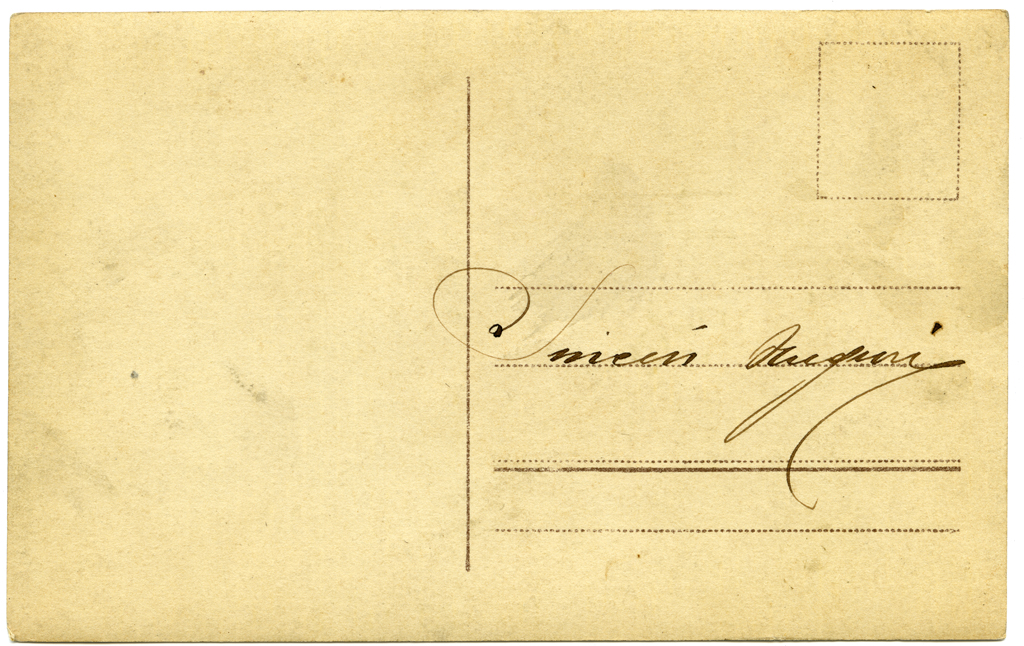 Sinceri Auguri